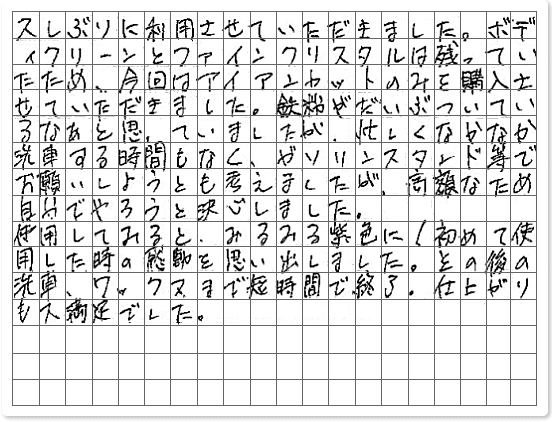 久しぶりに利用させていただきました。ボデ
ィクリーンとファインクリスタルは残ってい
たため、今回はアイアンカットのみを購入さ
せていただきました。鉄粉がだいぶついてい
るなあと思っていましたが、忙しくなかなか
洗車する時間もなく、ガソリンスタンド等で
お願いしようとも考えましたが、高額なため
自分でやろうと決心しました。
使用してみると、みるみる紫色に！初めて使
用した時の感動を思い出しました。その後の
洗車、ワックスまで短時間で終了。仕上がり
も大満足でした。